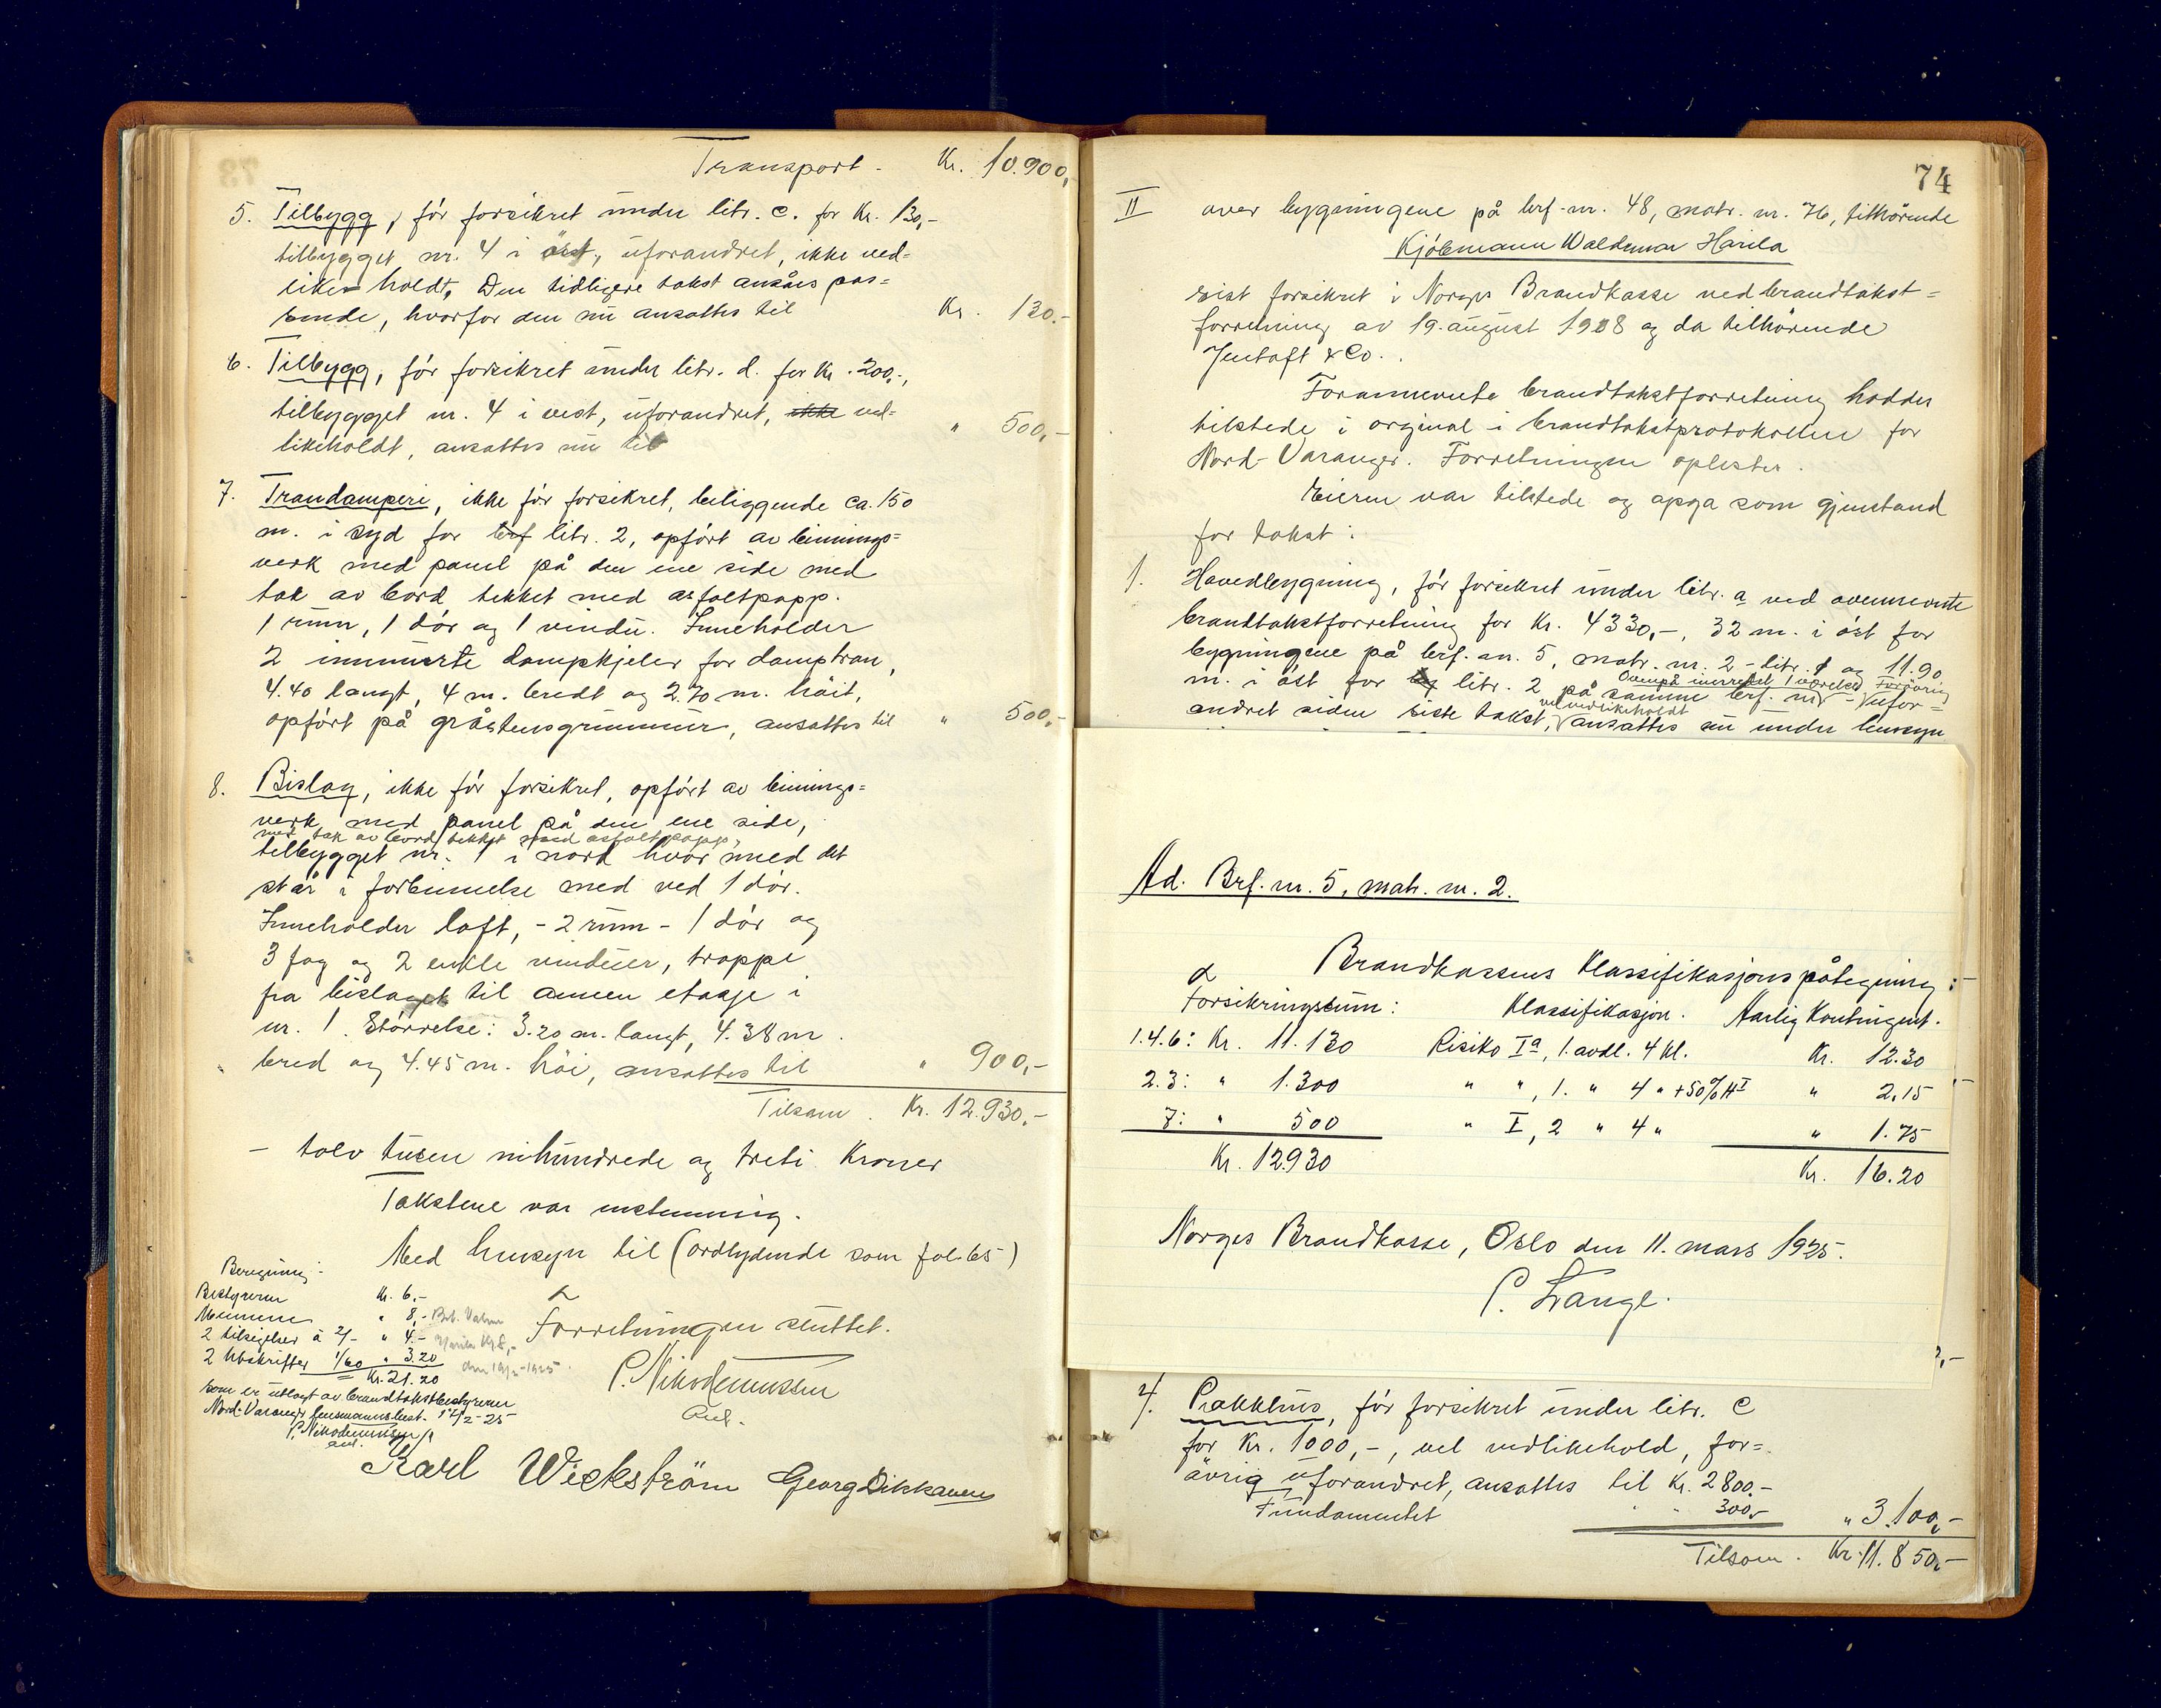 Transport. Kr. 10.900,
5. Tilbygg, før forsikret under litr. c. for Kr. 130,-
tilbygget nr. 4 i øst, uforandret, ikke ved=
like holdt. Den tidligere takst ansåes pas=
sende, hvorfor den nu ansattes til Kr. 130.-
6. Tilbygg, før forsikret under litr. d. for Kr. 200,-,
tilbygget nr. 4 i vest, uforandret, ikke ved=
likeholdt, ansattes nu til " 500,-
7. Trandamperi, ikke før forsikret, beliggende ca. 150
m. i syd for brf litr. 2, opført av binnings=
verk med panel på den ene side med
tak av bord tekket med asfaltpapp.
1 rum, 1 dør og 1 vindu. Inneholder
2 innmurte dampkjeler for damptran,
4.40 langt, 4 m. bredt og 2.70 m. høit,
opført på gråstensgrunnmur, ansattes til " 500,-
8. Bislag, ikke før forsikret, opført av binnings=
verk med panel på den ene side,
med tak av bord tekket med asfaltpapp,
tilbygget nr. 1 i nord hvor med det
står i forbinnelse med ved 1 dør.
Inneholder loft, - 2 rum - 1 dør og
3 fag og 2 enkle vinduer, trappe
fra bislaget til annen etasje i
nr. 1. Størrelse: 3.20 m. langt, 4.38 m
bred og 4.45 m. høi, ansattes til " 900,-
Tilsam. Kr. 12.930.-
- tolv tusen nihundrede og treti Kroner
Takstene var enstemmig.
Med hensyn til (ordlydende som fol. 65)
Beregning:
Bestyreren Kr. 6.-
Mennene " 8,-
2 tilsigelser à 2/- " 4.-
2 Utskrifter 1/60 " 3.20
Kr. 21.20
som er utlagt av brandtakstbestyreren
Nord-Varanger lensmannsbest. 17/2-25
P. Nikodemussen
aut.
Forretningen sluttet.
P. Nikodemussen
Aut.
Karl Wickström Georg Dikkanen
74
II over bygningene på brf.-nr. 48, matr. nr. 76, tilhørende
Kjøbmann Waldemar Harila
sist forsikret i Norges Brandkasse ved brandtakst=
forretning av 19. august 1908 og da tilhørende
Jentoft & Co.
Forannevnte brandtakstforretning haddes
tilstede i orginal i brandtakstprotokollen for
Nord-Varanger. Forretningen oplestes.
Eieren var tilstede og opga som gjenstand
for takst:
1. Hovedbygning, før forsikret under litr. a ved ovennevnte
brandtakstforretning for Kr. 4330,-, 32 m. i øst for
bygningene på brf. nr. 5, matr. nr. 2 - litr. 1 og 11.90
Ovenpå innredet 1 værelse Forøvrig
m. i øst for litr. 2 på samme brf. nr - ufor=
vel vedlikeholdt
andret siden siste takst, ansattes nu under hensyn
Ad. Brf. nr. 5, matr. nr. 2.
Brandkassens Klassifikasjonspåtegning:
Forsikringssum: Klassifikasjon. Aarlig Kontingent.
1.4.6: Kr. 11.130 Risiko Ia, 1. avdl. 4 Kl. Kr. 12.30
2.3: " 1.300 " ", 1. " 4 " +50% HI " 2.15
7: " 500 " I, 2 " 4 " " 1.75
Kr. 12930 Kr. 16.20
Norges Brandkasse, Oslo den 11. mars 1925.
P. Lange.
4. Pakkhus, før forsikret under litr. c
for Kr. 1000,-, vel vedlikehold, for=
øvrig uforandret, ansattes til Kr. 2800.-
Fundamentet " " 300,- " 3.100,-
Tilsam. Kr. 11.850,-